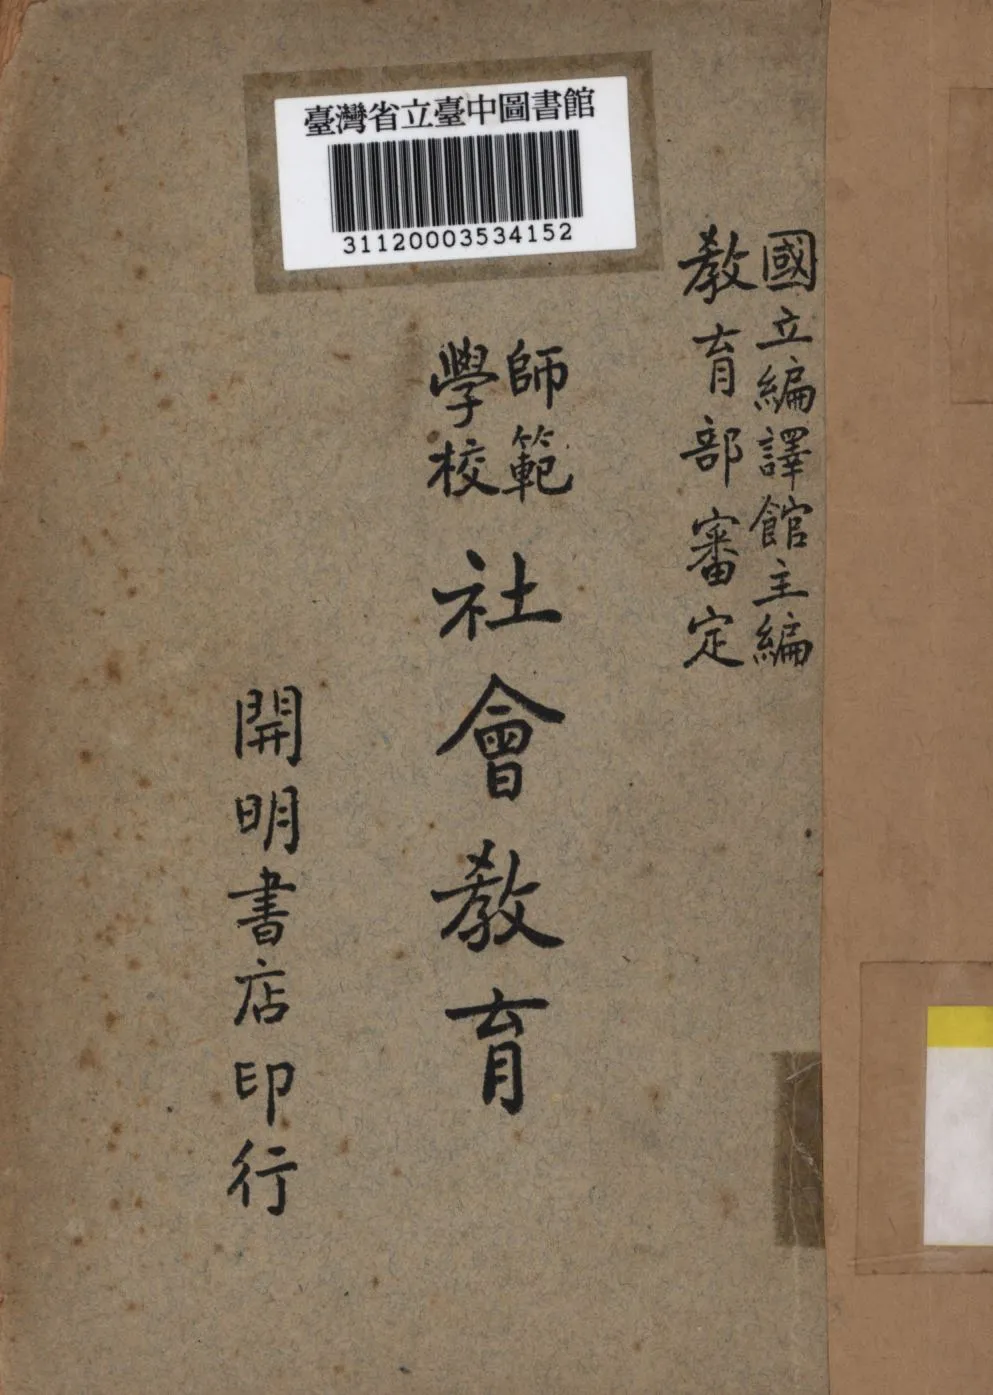 臺灣省立臺中圖書館
31120003534152
國立編譯館主編
教育部審定
師範
學校
社會教育
開明書店印行